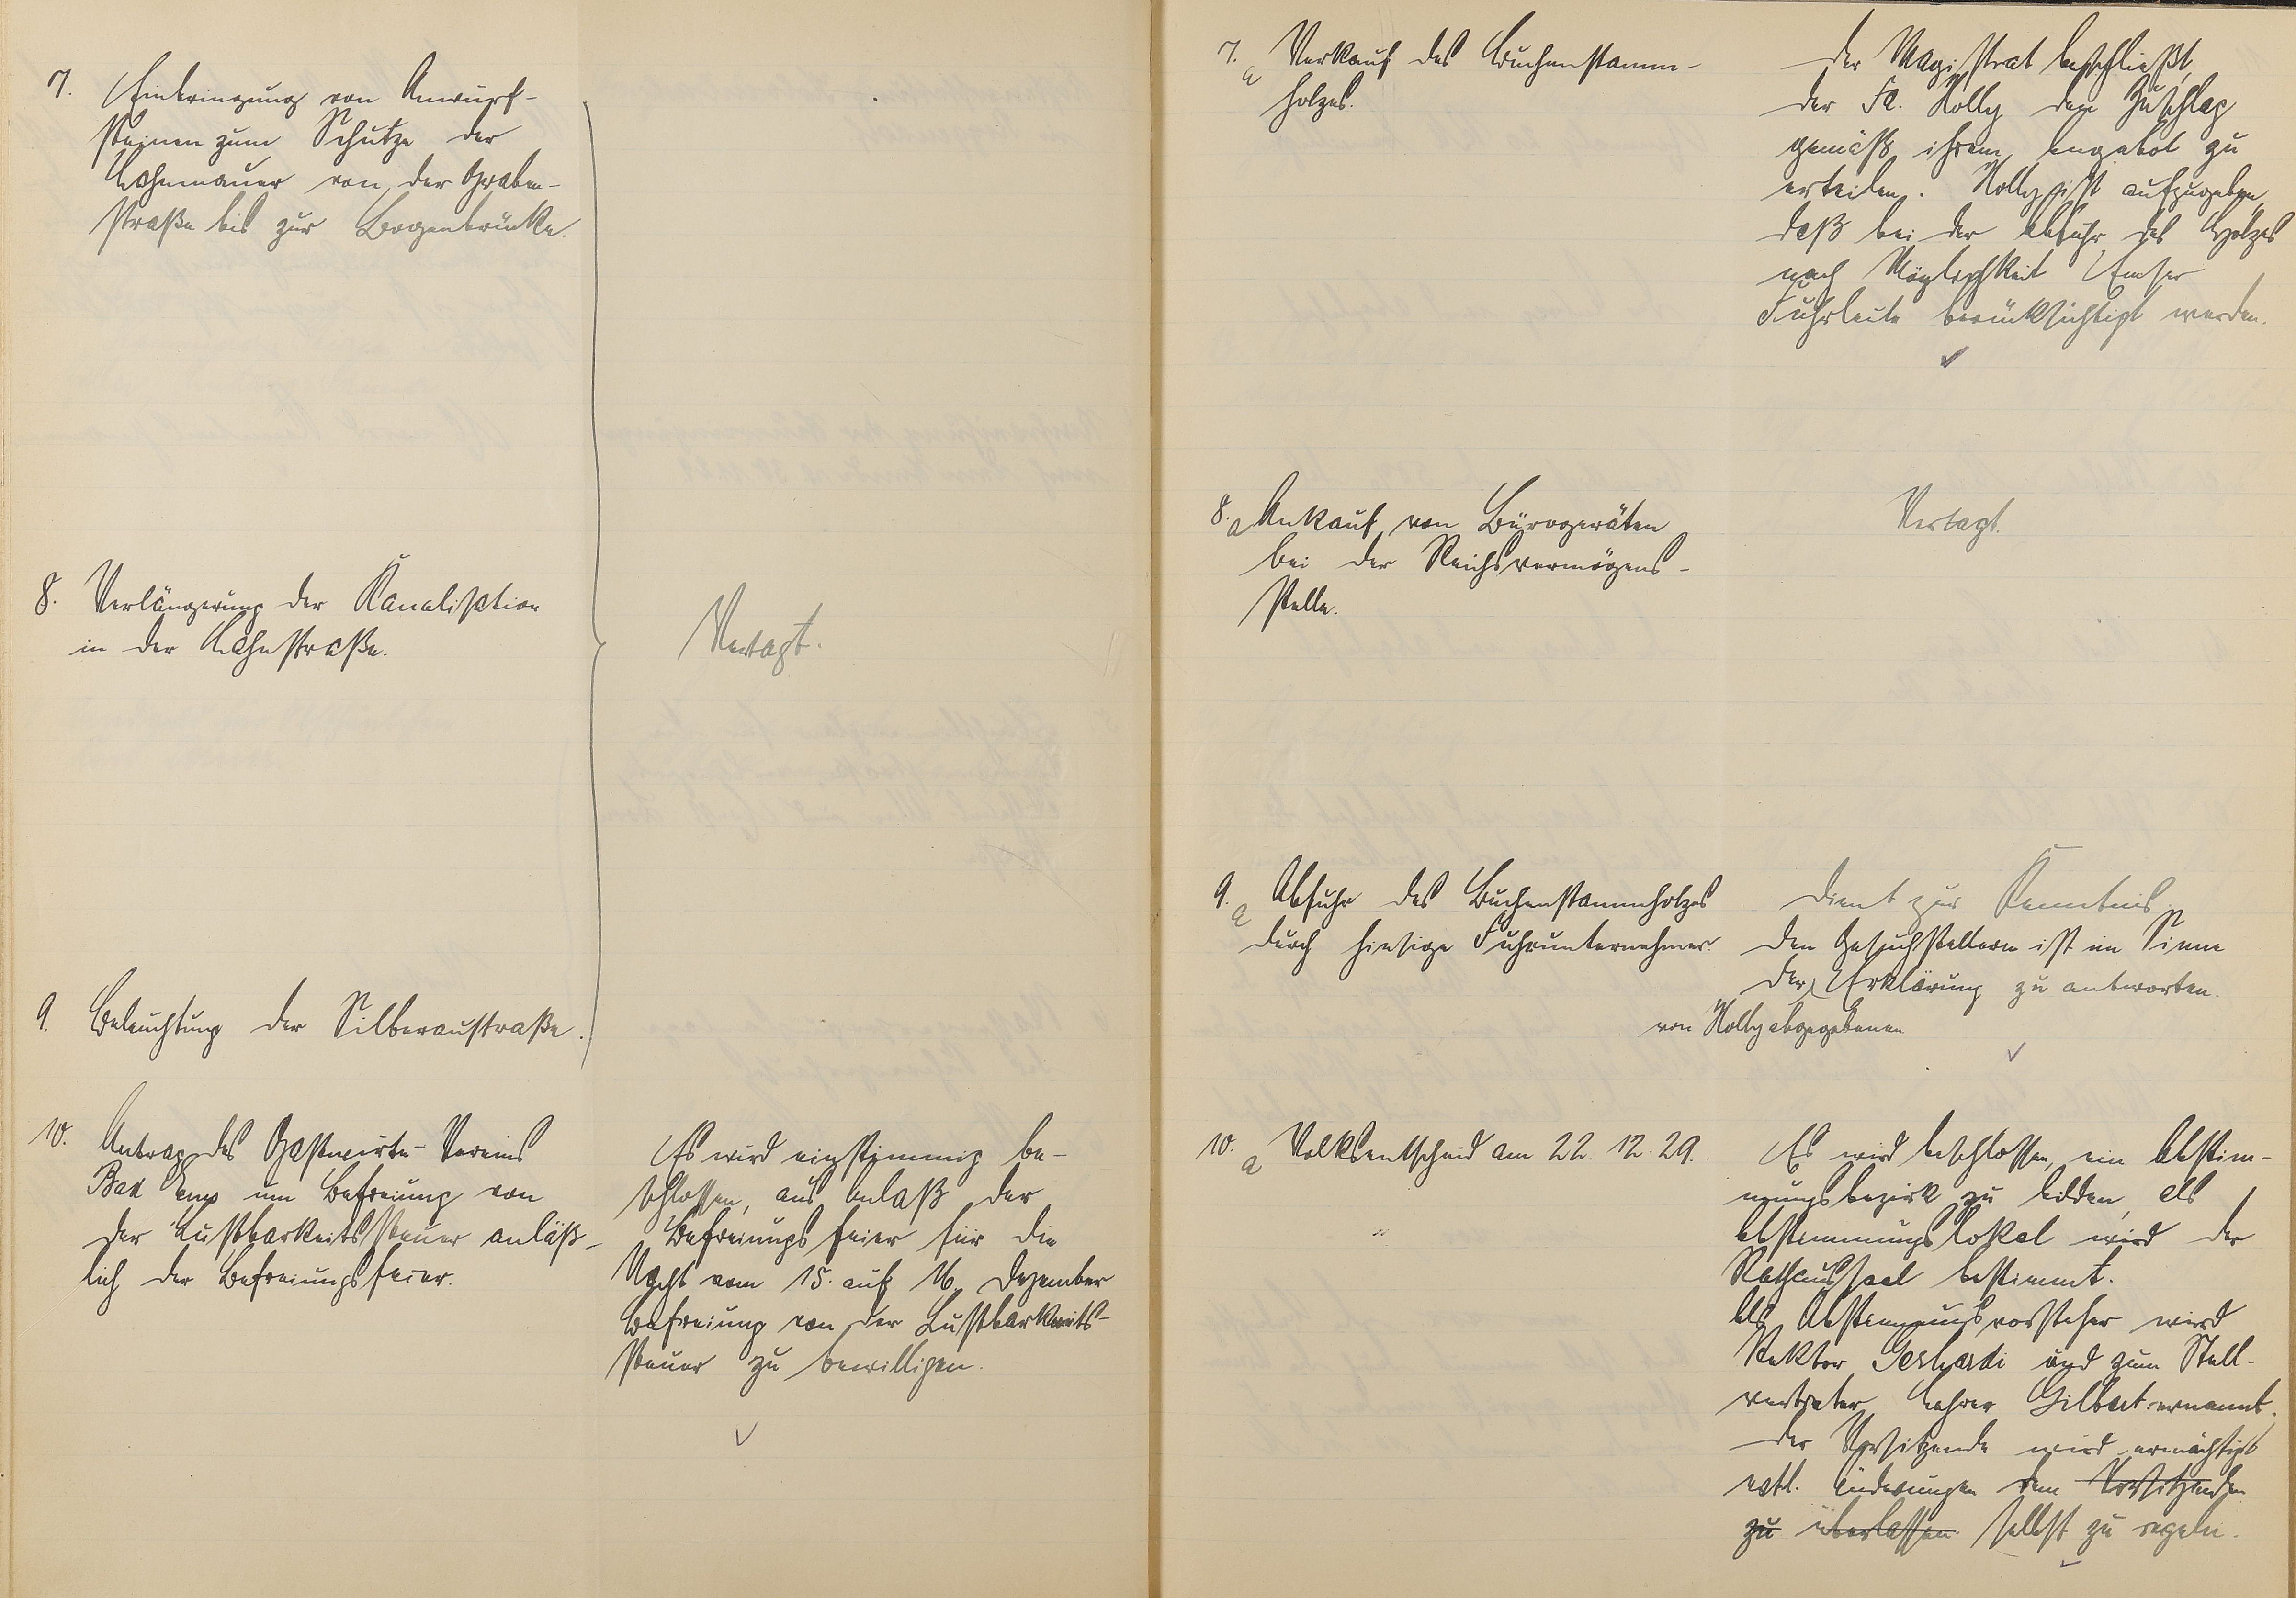 7. Einbringung von Anwurf-
steinen zum Schutze der
Lahnmauer von der Graben-
straße bis zur Bogenbrücke.
8. Verlängerung der Kanalisation
in der Lahnstraße.
Vertagt.
9. Beleuchtung der Silberaustraße.
10. Antrag des Gastwirte-Vereins
Bad Ems um Befreiung von
der Lustbarkeitssteuer anläß-
lich der Befreiungsfeier.
Es wird einstimmig be-
schlossen, aus Anlaß der
Befreiungsfeier für die
Nacht vom 15. auf 16. Dezember
Befreiung von der Lustbarkeits-
steuer zu bewilligen.
7.a Verkauf des Buchenstamm-
holzes.
Der Magistrat beschließt,
der Fa. Holly den Zuschlag
gemäß ihrem Angebot zu
erteilen. Holly ist aufzugeben,
daß bei der Abfuhr des Holzes
nach Möglichkeit Emser
Fuhrleute berücksichtigt werden.
8.a Ankauf von Bürogeräten
bei der Reichsvermögens-
stelle.
Vertagt.
9.a Abfuhr des Buchenstammholzes
durch hiesige Fuhrunternehmer.
Dient zur Kenntnis.
Den Gesuchstellern ist im Sinne
der Erklärung zu antworten.
von Holly abgegebenen
10.a Volksentscheid am 22.12.29.
Es wird beschlossen, ein Abstim-
mungsbezirk zu bilden, als
Abstimmungslokal wird der
Rathaussaal bestimmt.
Als Abstimmungsvorsteher wird
Rektor Gerhardi und zum Stell-
vertreter Lehrer Gilbert ernannt.
Der Vorsitzende wird ermächtigt
evtl. Änderungen dem Vorsitzenden
zu überlassen selbst zu regeln.